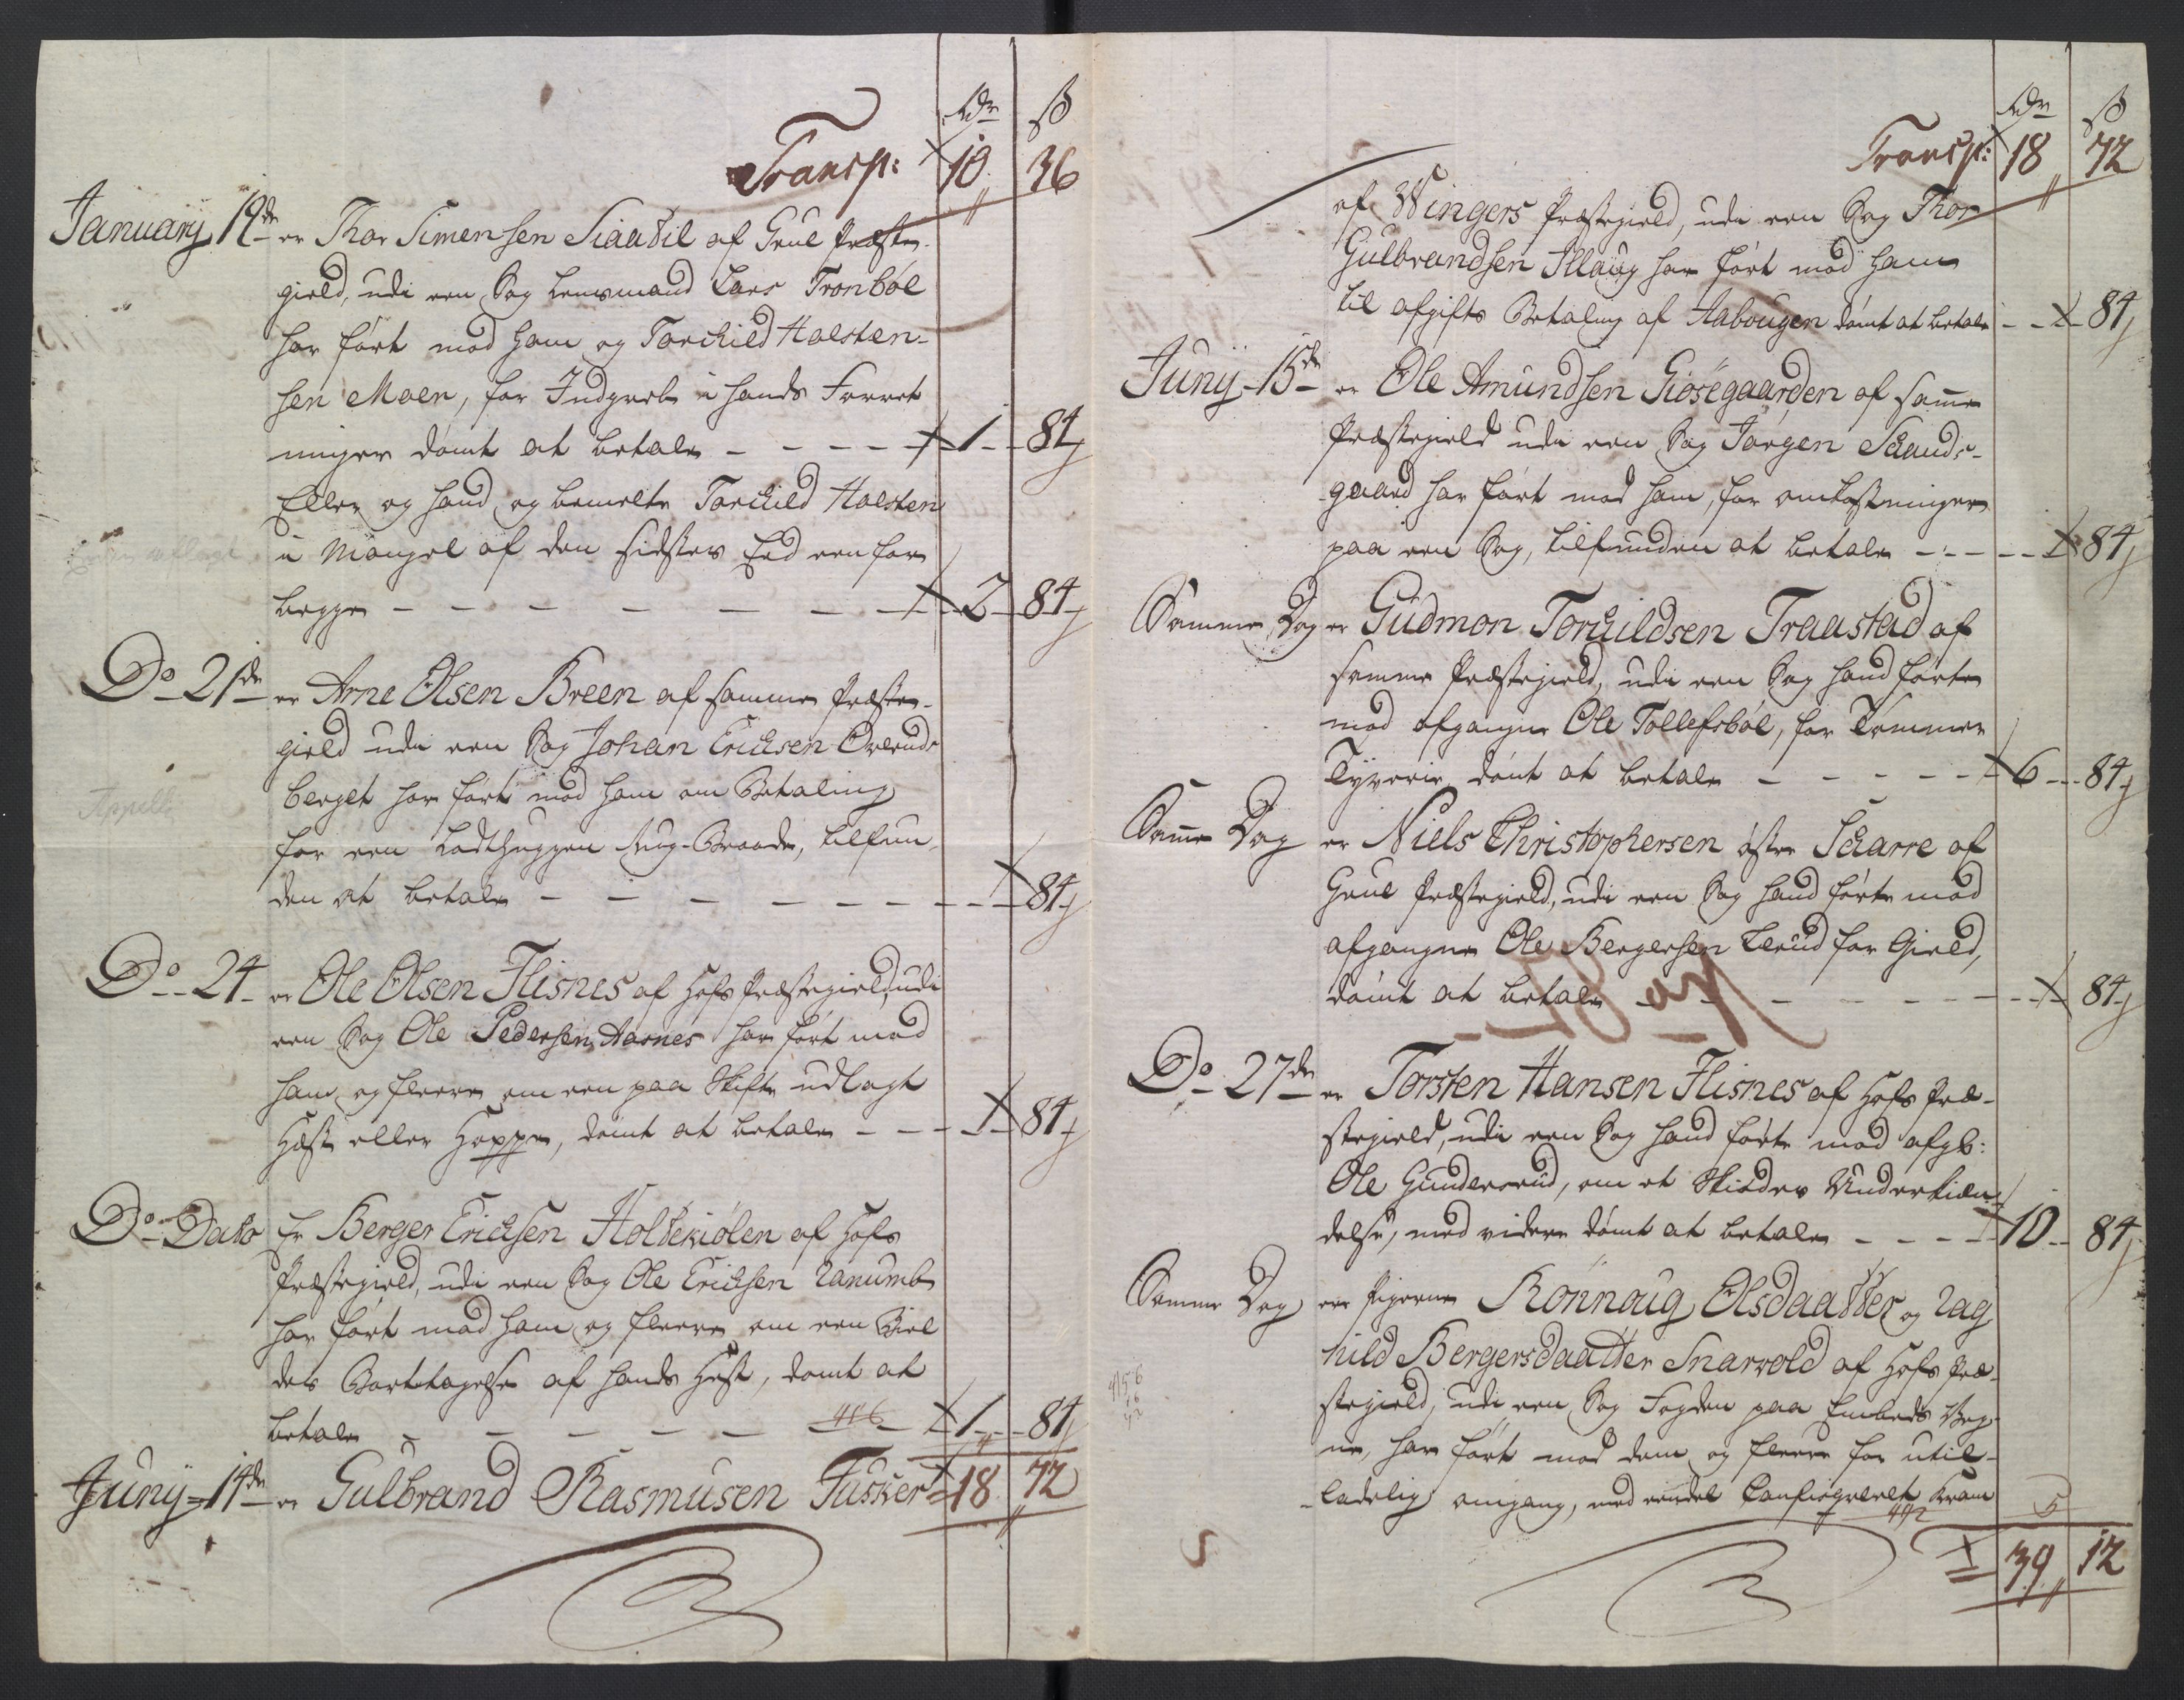 Rdr ß
Transp: 10 36
January 19de er Thor Simensen Siaatil af Grue Præste-
gield, udi een Sag Lensmand Lars Tronbøl
har ført mod ham og Torchild Halsten-
sen Moen, for Indgreb i hands Forret
ninger dømt at betale - - - - 1 - 84
Eller og hand og bemelte Torchild Halsten
i Mangel af den sidstes Eed een for
begge - - - - - - - 2 - 84
Do 21de er Arne Olsen Breen af samme Præste-
gield udi een Sag Johan Erichsen Overuds
berget har ført mod ham om Betaling
Appell:
for een Rug-Braade, tilfun-
den at betale - - - - - - - 84
Do - 24 - er Ole Olsen Flisnes af Hofs Præstegield, udi
een Sag Ole Pedersen Aasnes har ført mod
ham og fleere om een paa Skifte udlagt
Hæst eller Hoppe, dømt at betale - - - 1 - 84
Do Dato Er Berger Erichsen Holtekiølen af Hofs
Præstegield, udi een Sag Ole Erichsen Ranumb
har ført mod ham og fleere om een
des Borttagelse af hands Hest, dømt at
betale - - - - - - 1 - 84
Juny 14de er Gulbrand Rasmusen Fusker 18 72
Rdr ß
Transp: 18 72
af Wingers Præstegield, udi een Sag Thor
Gulbrandsen Illaug har ført mod ham
til afgifts Betaling af Aabougen dømt at betale - - 2 - 84
Juny 15de er Ole Amundsen Giøsegaarden af samme
Præstegield udi een Sag Jørgen Skands-
gaard har ført mod ham, for omkostninger
paa een Sag, tilfunden at betale - - - - 1 84
Samme Dag er Gudmon Torchildsen Traastad af
samme Præstegield, udi een Sag hand førte
mod afgangne Ole Tollefsbøl, for Tømmer
Tyverie dømt at betale - - - - - 6 - - 84
Samme Dag er Niels Christophersen øster Skarre af
Grue Præstegield, udi een Sag hand førte mod
afgangne Ole Bergersen Lerud for Gield,
dømt at betale - - - - - - - 84
Do 27de er Torsten Hansen Flisnes af Hofs Præ-
stegield, udi een Sag hand førte mod afgb:
Ole Gunderserud, om et Skiødes Underkien-
delse, med videre dømt at betale - - - - 10 - - 84
Samme Dag ere Pigerne Rønnoug Olsdaatter og Rag
hild Bergersdaatter Snarvold af Hofs Præ-
stegield, udi een Sag Fogden paa Embeds Veg-
ne, har ført mod dem og fleere for util-
ladelig omgang, med eendel Confisqveret Kram
39 12